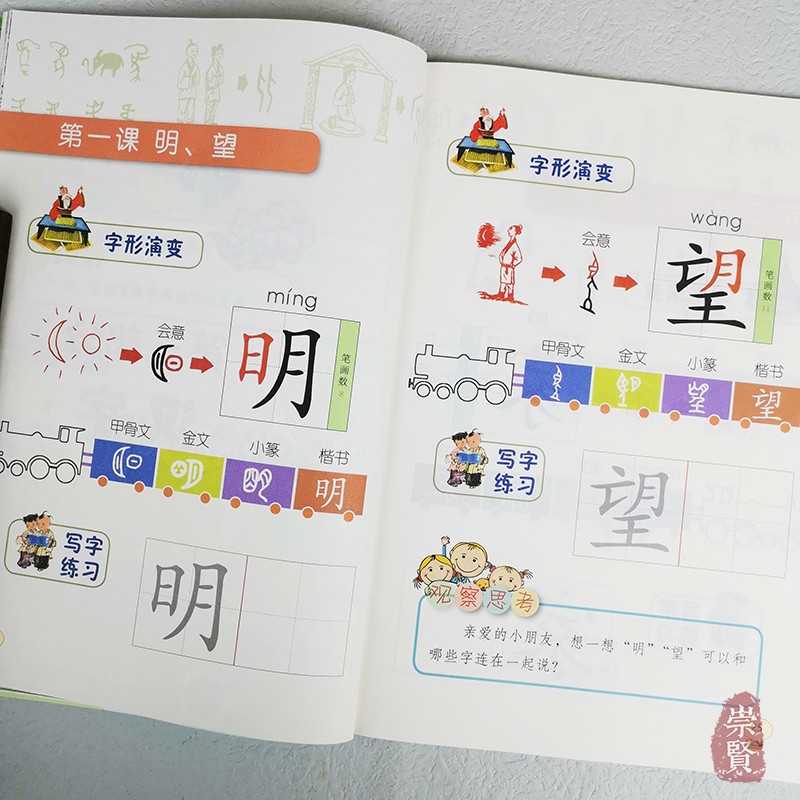 第一课 明、望
字形演变
míng
会意
明
笔画数 8
甲骨文 金文 小篆 楷书
明
写字
练习
明
字形演变
wàng
会意
望
笔画数 11
甲骨文 金文 小篆 楷书
望
写字
练习
望
观察思考
亲爱的小朋友，想一想“明”“望”可以和
哪些字连在一起说？
崇賢